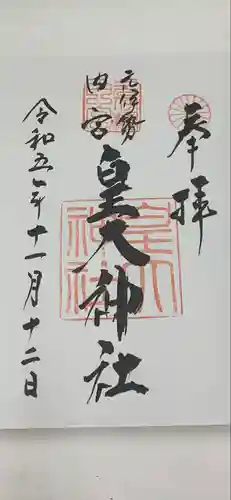 奉拝
元伊勢
内宮
皇大神社
令和五年十一月十二日